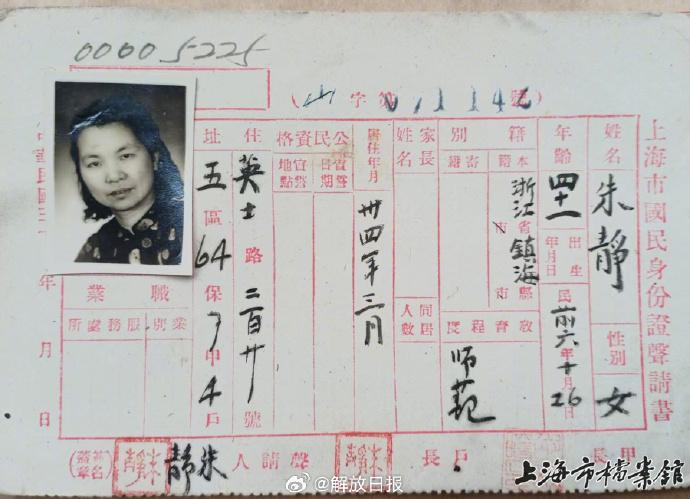 00005225
上海市國民身份證聲請書
姓名 朱靜 性別 女
年齡 四十一 出生年月日 民前六年十月26日
籍別 本籍 浙江省鎮海縣市 寄籍
教育程度 师范
家長姓名
同居人數
居住年月 卅四年三月
公民資格 宣誓日期 宣誓地點
住址 英士路二百廿號
五區64保7甲4戶
職業 業別 服務處所
年 月 日
甲長
戶長
聲請人 朱靜
簽名蓋章
@解放日报
上海市檔案館